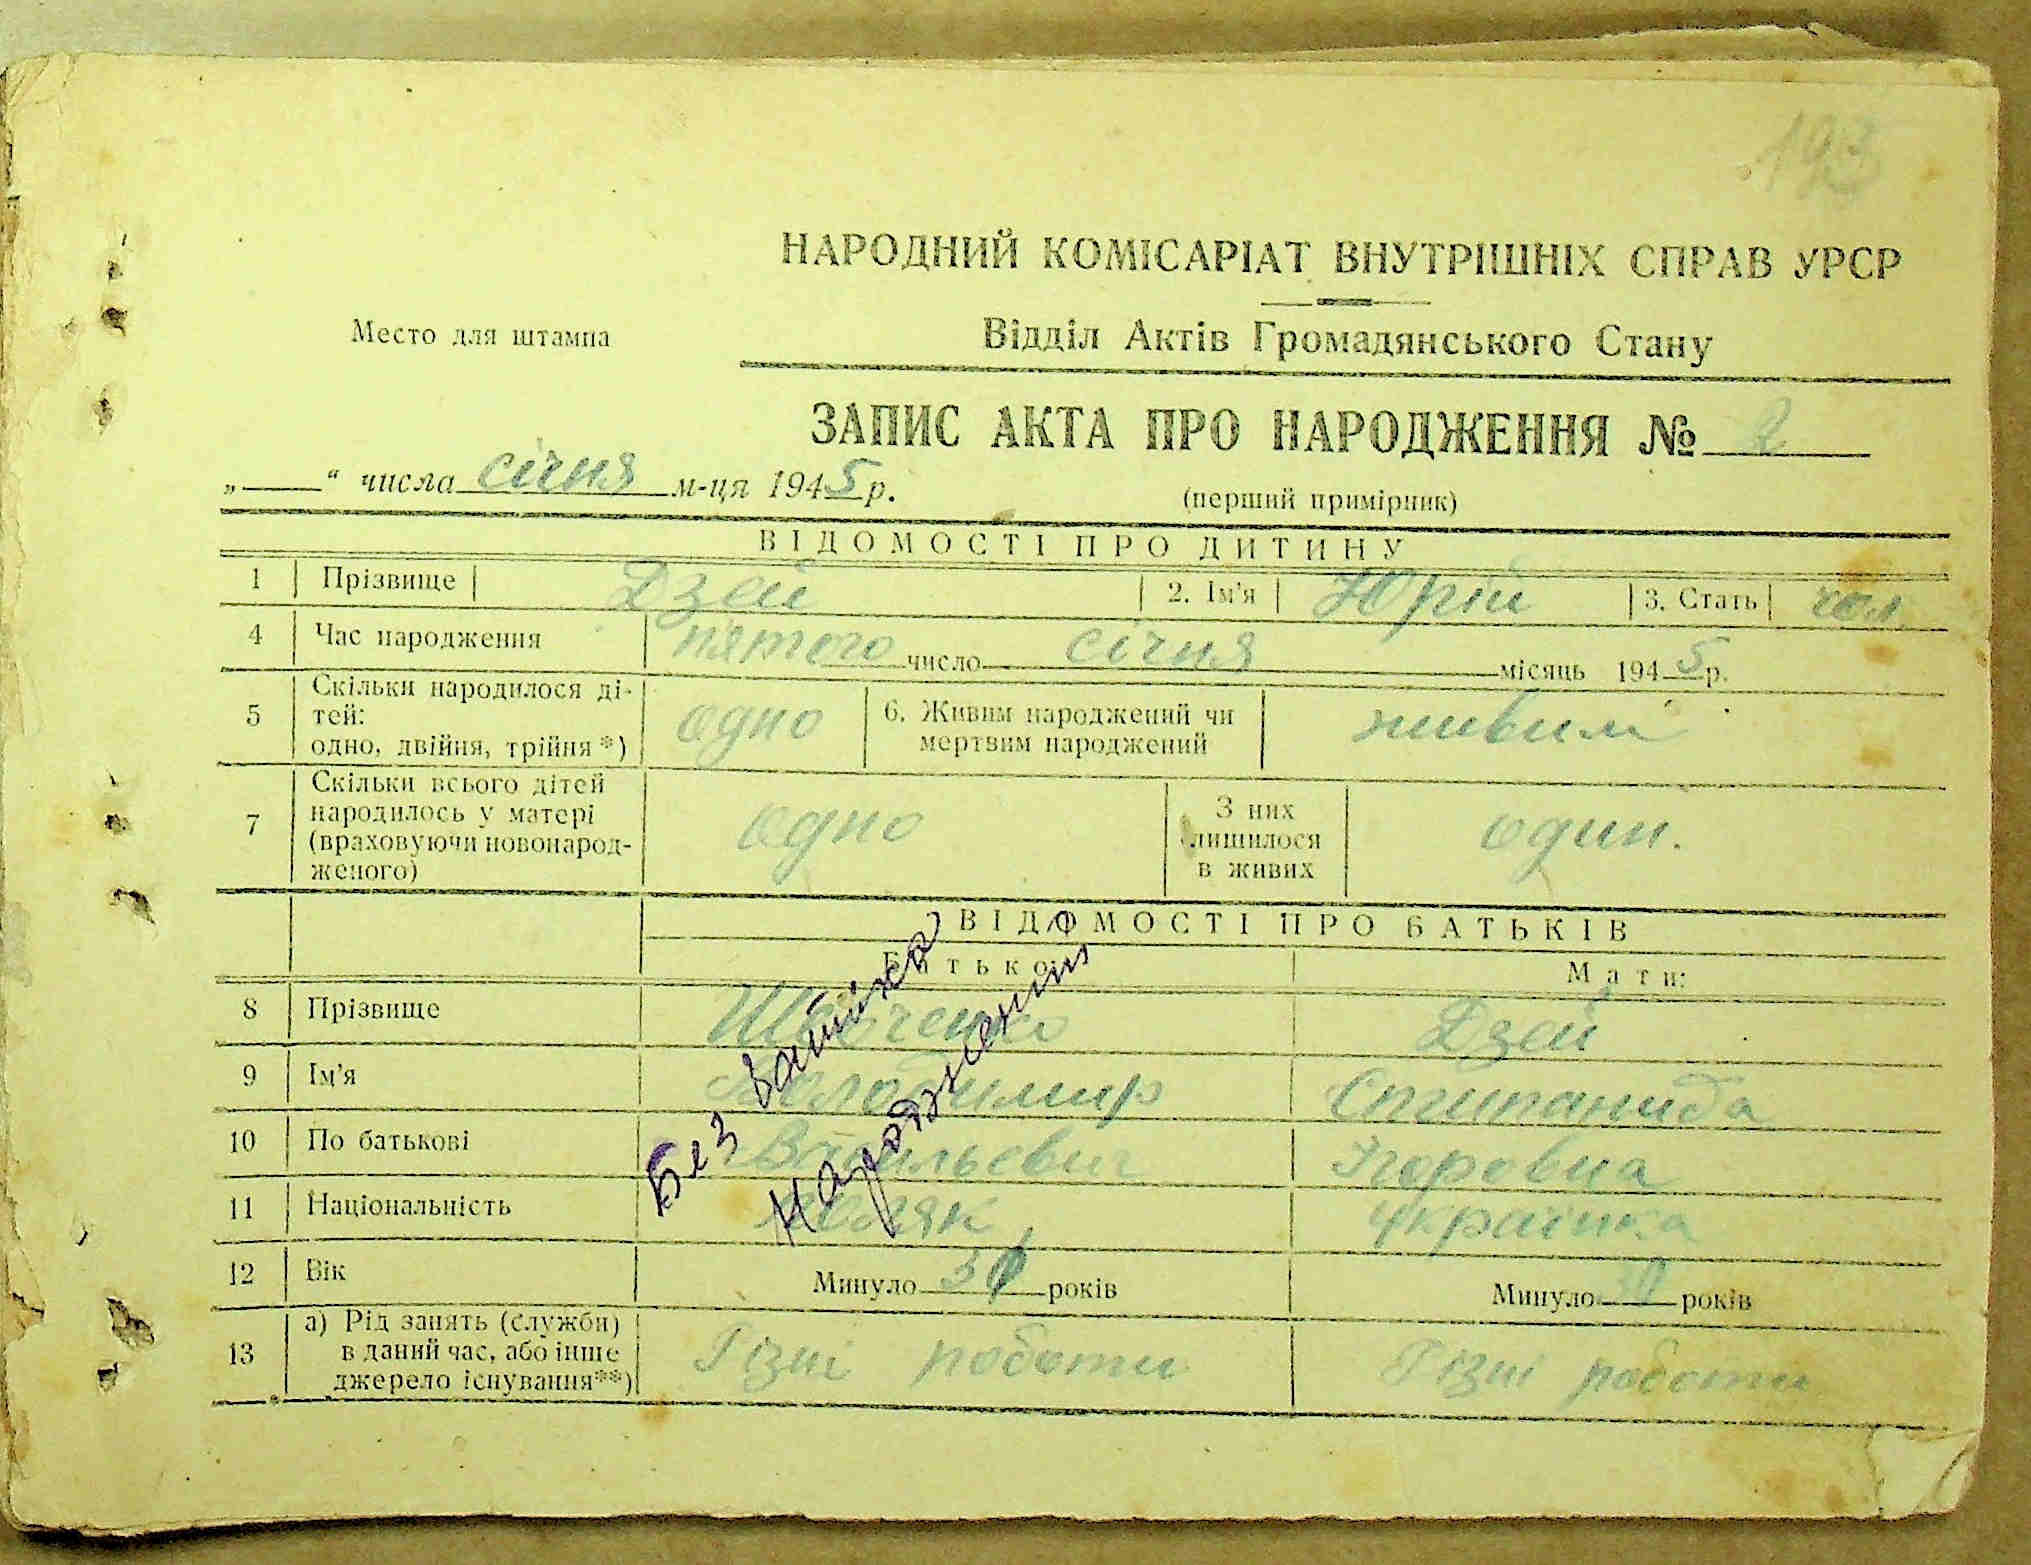 193
НАРОДНИЙ КОМІСАРІАТ ВНУТРІШНІХ СПРАВ УРСР
Место для штампа
Відділ Актів Громадянського Стану
ЗАПИС АКТА ПРО НАРОДЖЕННЯ № 2
„ “ числа січня м-ця 1945 р.
(перший примірник)
ВІДОМОСТІ ПРО ДИТИНУ
1 Прізвище Дзей 2. Ім'я Юрій 3. Стать чол.
4 Час народження пятого число січня місяць 1945 р.
5 Скільки народилося ді-
тей:
одно, двійня, трійня *) одно 6. Живим народжений чи
мертвим народжений живим
7 Скільки всього дітей
народилось у матері
(враховуючи новонарод-
женого) одно З них
лишилося
в живих один.
ВІДОМОСТІ ПРО БАТЬКІВ
Батько: Мати:
8 Прізвище Шевченко Дзей
9 Ім'я Володимир Стипанида
10 По батькові Васильевич Ігоровна
11 Національність поляк українка
Без запиту
народження
12 Вік Минуло років Минуло років
13 а) Рід занять (служби)
в даний час, або інше
джерело існування**) Різні роботи Різні роботи